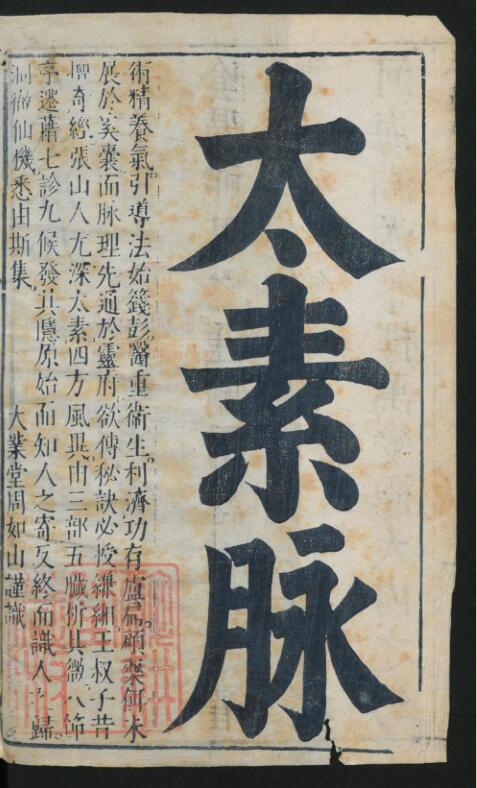 太素脉
術精養氣引導法始籛彭醫重衛生利濟功有盧扁顧藥餌未
展於奚囊而脉理先通於靈府欲傳秘訣必授緗王叔子昔
奇經張山人尤深太素四方風異由三部五臟析其微八節
亭遷藉七診九候發其隱原始而知人之寄反終而識人歸
洞徹仙機悉由斯集
大業堂周如山謹識